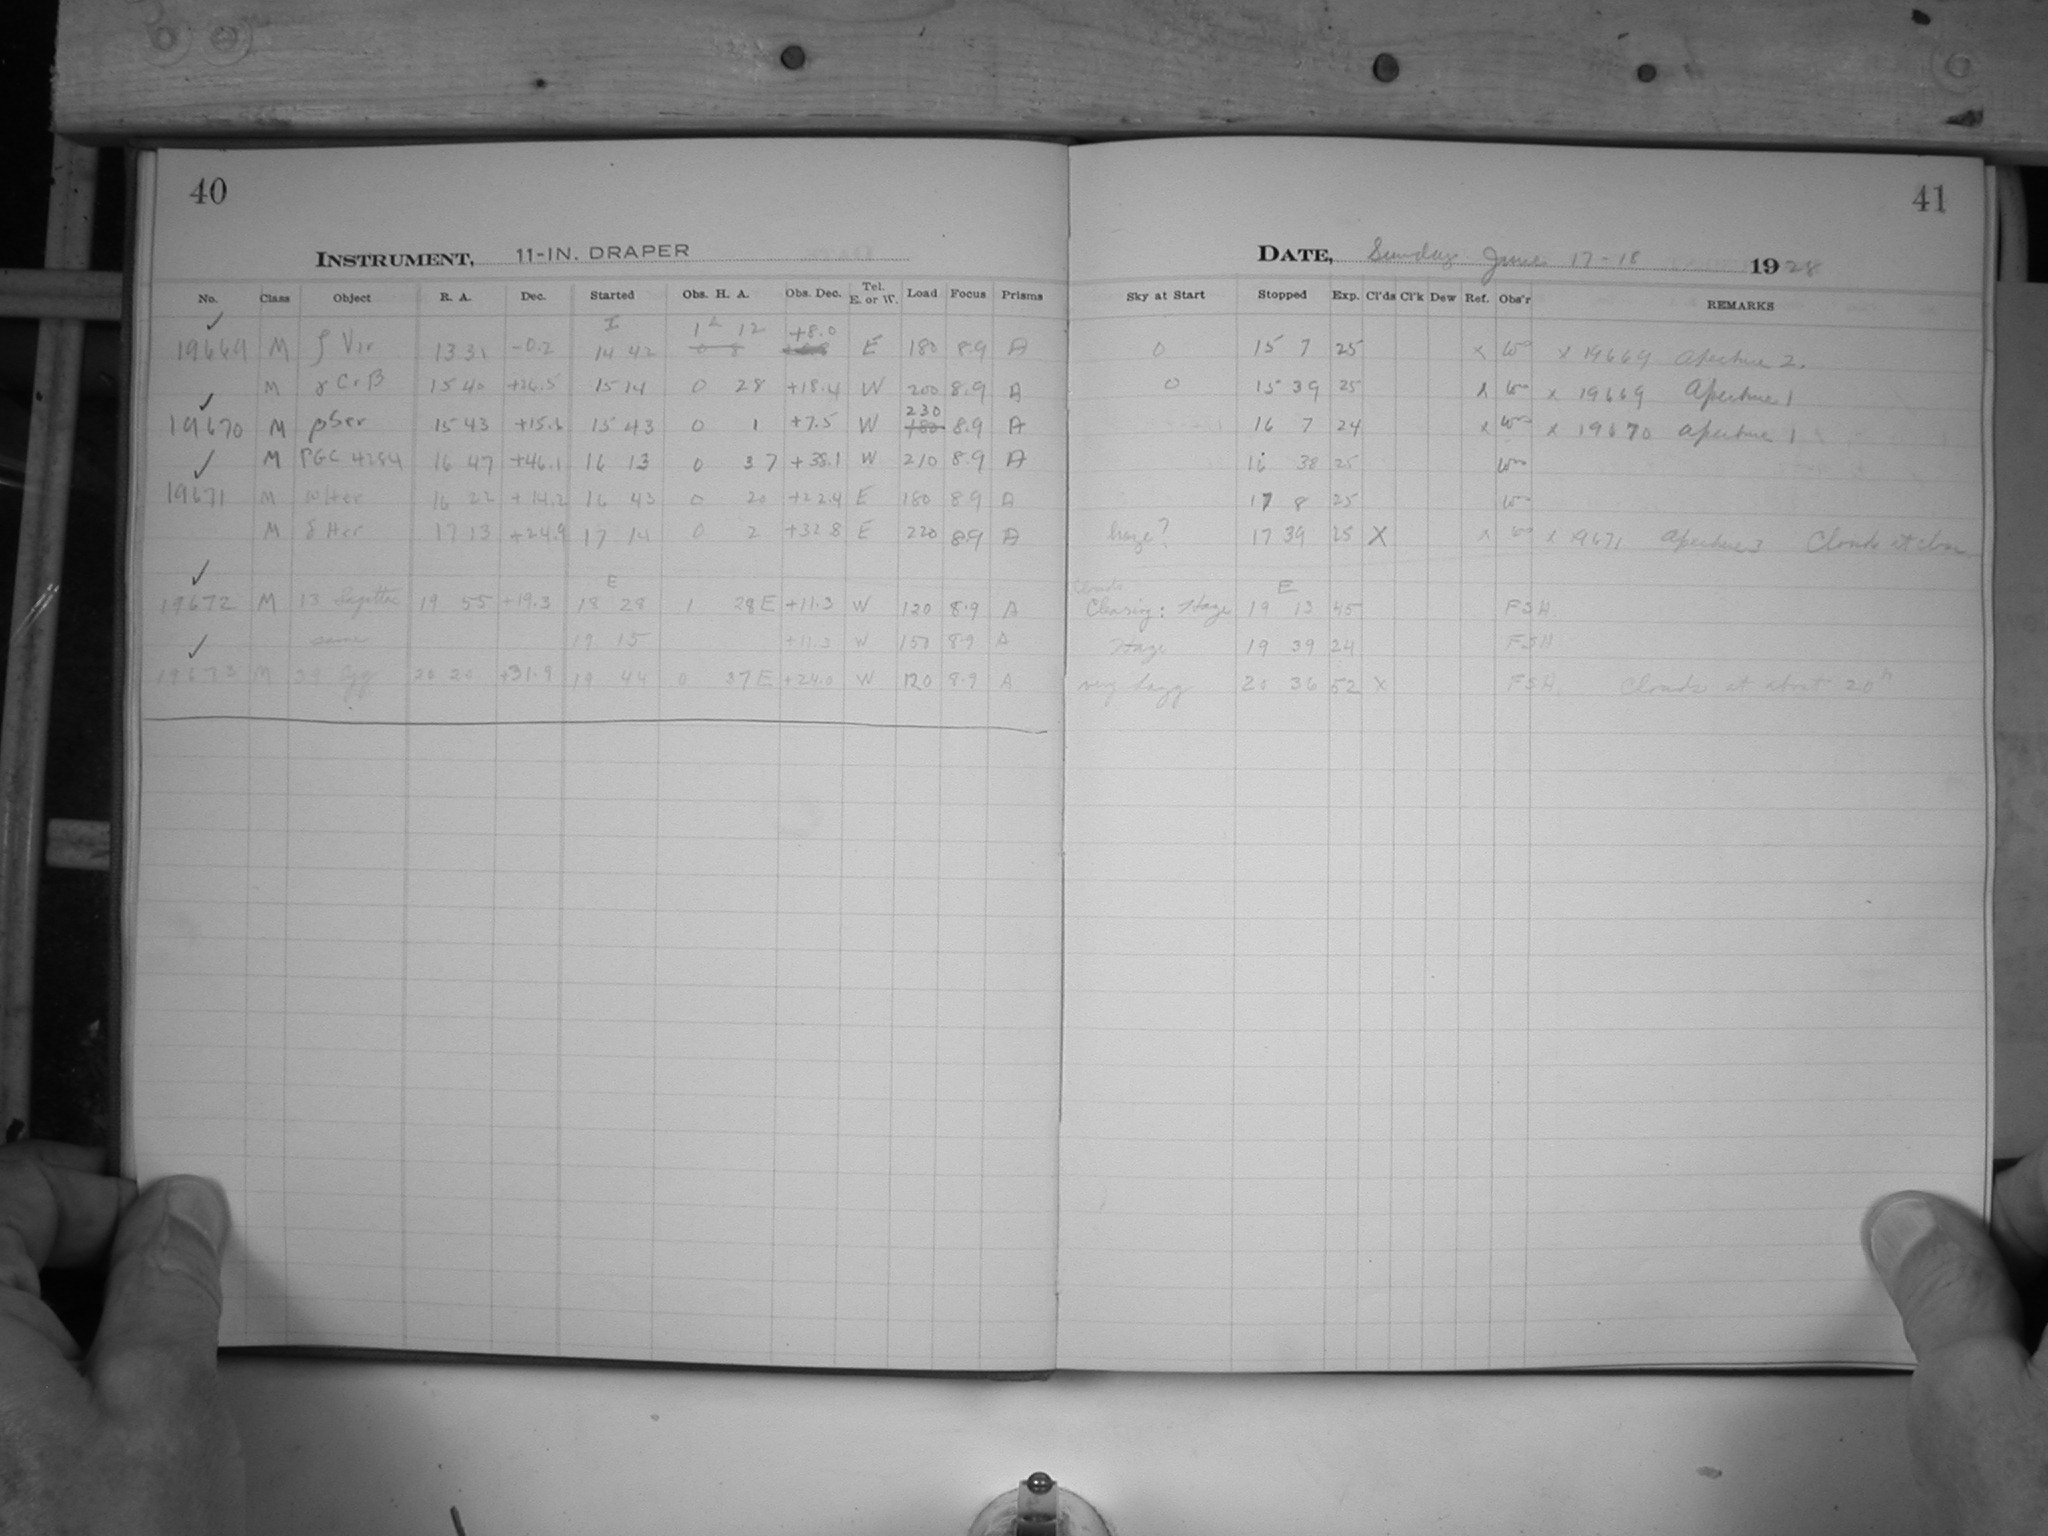 40
INSTRUMENT, 11-IN. DRAPER
No. Class Object R. A. Dec. Started Obs. H. A. Obs. Dec. Tel. E. or W. Load Focus Prisms
I
19669 M ζ Vir 13 31 -0.2 14 42 1 12 +8.0 E 180 8.9 A
M γ CrB 15 40 +26.5 15 14 0 28 +18.4 W 200 8.9 A
19670 M β Ser 15 43 +15.3 15 43 0 1 +7.5 W 230 180 8.9 A
M PGC 4284 16 47 +46.1 16 13 0 37 +38.1 W 210 8.9 A
19671 M ω Her 16 22 +14.2 16 43 0 20 +22.4 E 180 8.9 A
M δ Her 17 13 +24.9 17 14 0 2 +32.8 E 220 8.9 A
E
19672 M 13 Sagittae 19 55 +19.3 18 28 1 28 E +11.3 W 120 8.9 A
same 19 15 +11.3 W 150 8.9 A
19673 M 29 Cyg 20 20 +31.9 19 44 0 37 E +24.0 W 120 8.9 A
41
DATE, Sunday June 17-18 1928
Sky at Start Stopped Exp. Cl'ds Cl'k Dew Ref. Obs'r REMARKS
0 15 7 25 x x 19669 Aperture 2.
0 15 39 25 x x 19669 Aperture 1
16 7 24 x x 19670 Aperture 1
16 38 25
17 8 25
haze? 17 39 25 X x x 19671 Aperture 3 Clouds at close
Clouds E
Clearing: Haze 19 13 45 FSH.
Haze 19 39 24 FSH
very hazy 20 36 52 x FSH. Clouds at about 20h